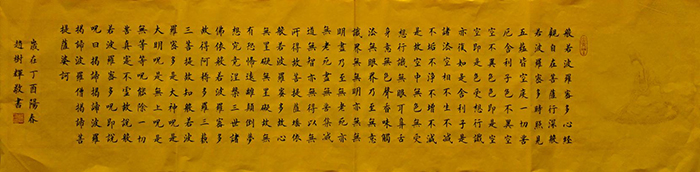 般若波羅蜜多心經
觀自在菩薩行深般
若波羅蜜多時照見
五蘊皆空度一切苦
厄舍利子色不異空
空不異色色即是空
空即是色受想行識
亦復如是舍利子是
諸法空相不生不滅
不垢不淨不增不減
是故空中無色無受
想行識無眼耳鼻舌
身意無色聲香味觸
法無眼界乃至無意
識界無無明亦無無
明盡乃至無老死亦
無老死盡無苦集滅
道無智亦無得以無
所得故菩提薩埵依
般若波羅蜜多故心
無罣礙無罣礙故無
有恐怖遠離顛倒夢
想究竟涅槃三世諸
佛依般若波羅蜜多
故得阿耨多羅三藐
三菩提故知般若波
羅蜜多是大神呪是
大明呪是無上呪是
無等等呪能除一切
苦真實不虛故說般
若波羅蜜多呪即說
呪曰揭諦揭諦波羅
揭諦波羅僧揭諦菩
提薩婆訶
歲在丁酉陽春
趙樹輝敬書